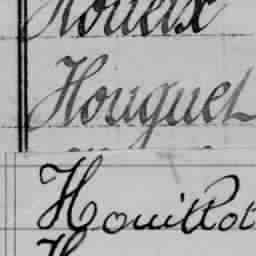 Houeix
Houguet
Houillot